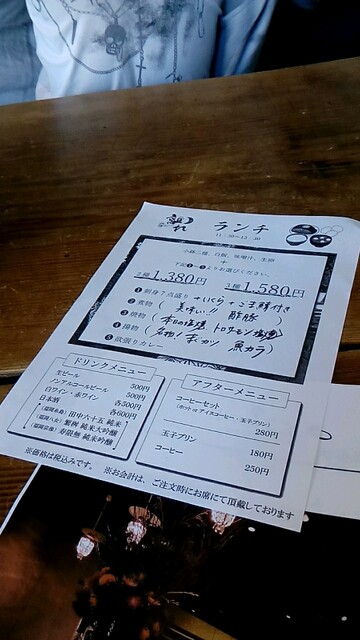 ランチ
11:30〜13:30
小鉢二種、白飯、味噌汁、生卵
+
下記❶〜❺よりお選びください。
2種 1,380円 3種 1,580円
❶ 刺身7点盛り +いくら +ご主鮮付き
❷ 煮物 美味い!! 酢豚
❸ 焼物 (本日の塩焼 トロサーモン塩焼)
❹ 揚物 (名物! 串カツ 魚カラ)
❺ 欲張りカレー
ドリンクメニュー
生ビール 500円
ノンアルコールビール 500円
白ワイン・赤ワイン 各500円
日本酒 各600円
(福岡糸島) 田中六十五 純米
(福岡八女) 繁桝 純米大吟醸
(福岡宗像) 寿限無 純米吟醸
アフターメニュー
コーヒーセット
(ホット or アイスコーヒー・玉子プリン)
280円
玉子プリン 180円
コーヒー 250円
※価格は税込みです。 ※お会計は、ご注文時にお席にて頂戴しております